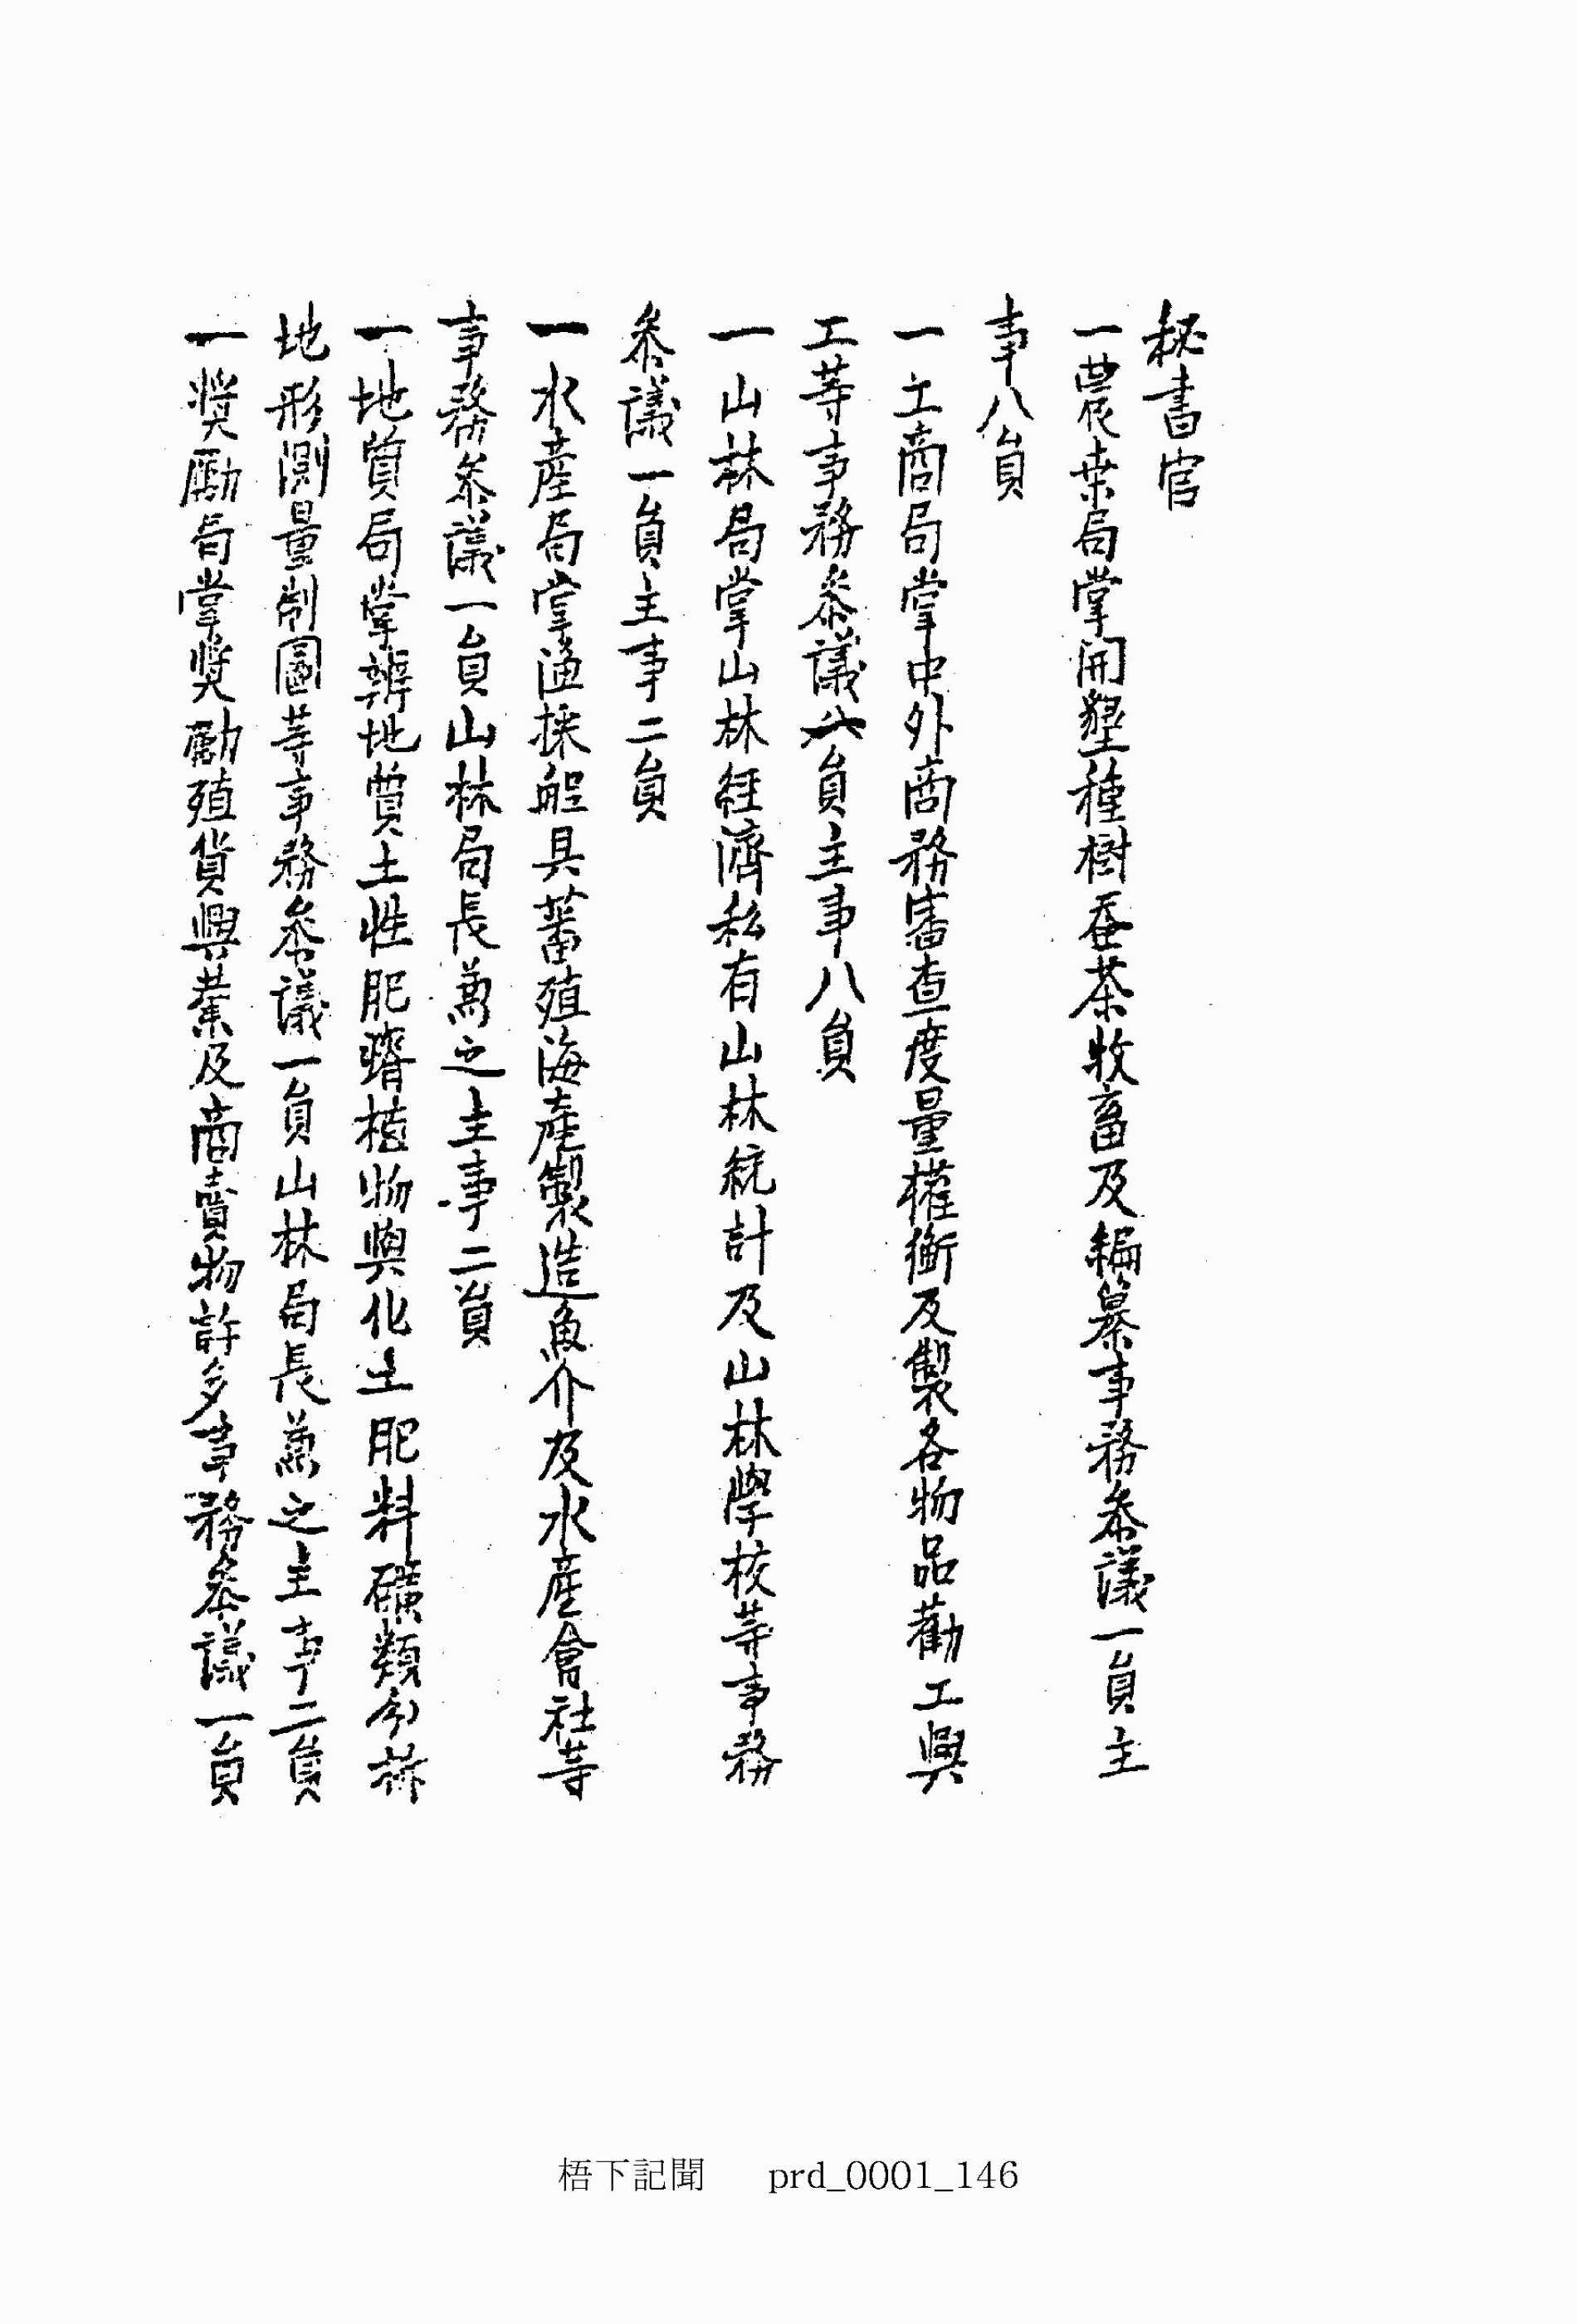 秘書官
一農桒局掌開墾種樹蚕茶牧畜及編纂事務叅議一員主
事八員
一工商局掌中外商務審査度量權衡及製各物品勸工興
工等事務叅議八員主事八員
一山林局掌山林經濟私有山林統計及山林學校等事務
叅議一員主事二員
一水産局掌漁採船具蕃殖海産製造魚介及水産會社等
事務叅議一員山林局長兼之主事二員
一地質局掌辨地質土性肥瘠植物與化土肥料礦類分析
地形測量制圖等事務叅議一員山林局長兼之主事二員
一奬勵局掌奬勵殖貨興業及商賣物許多事務叅議一員
梧下記聞 prd_0001_146